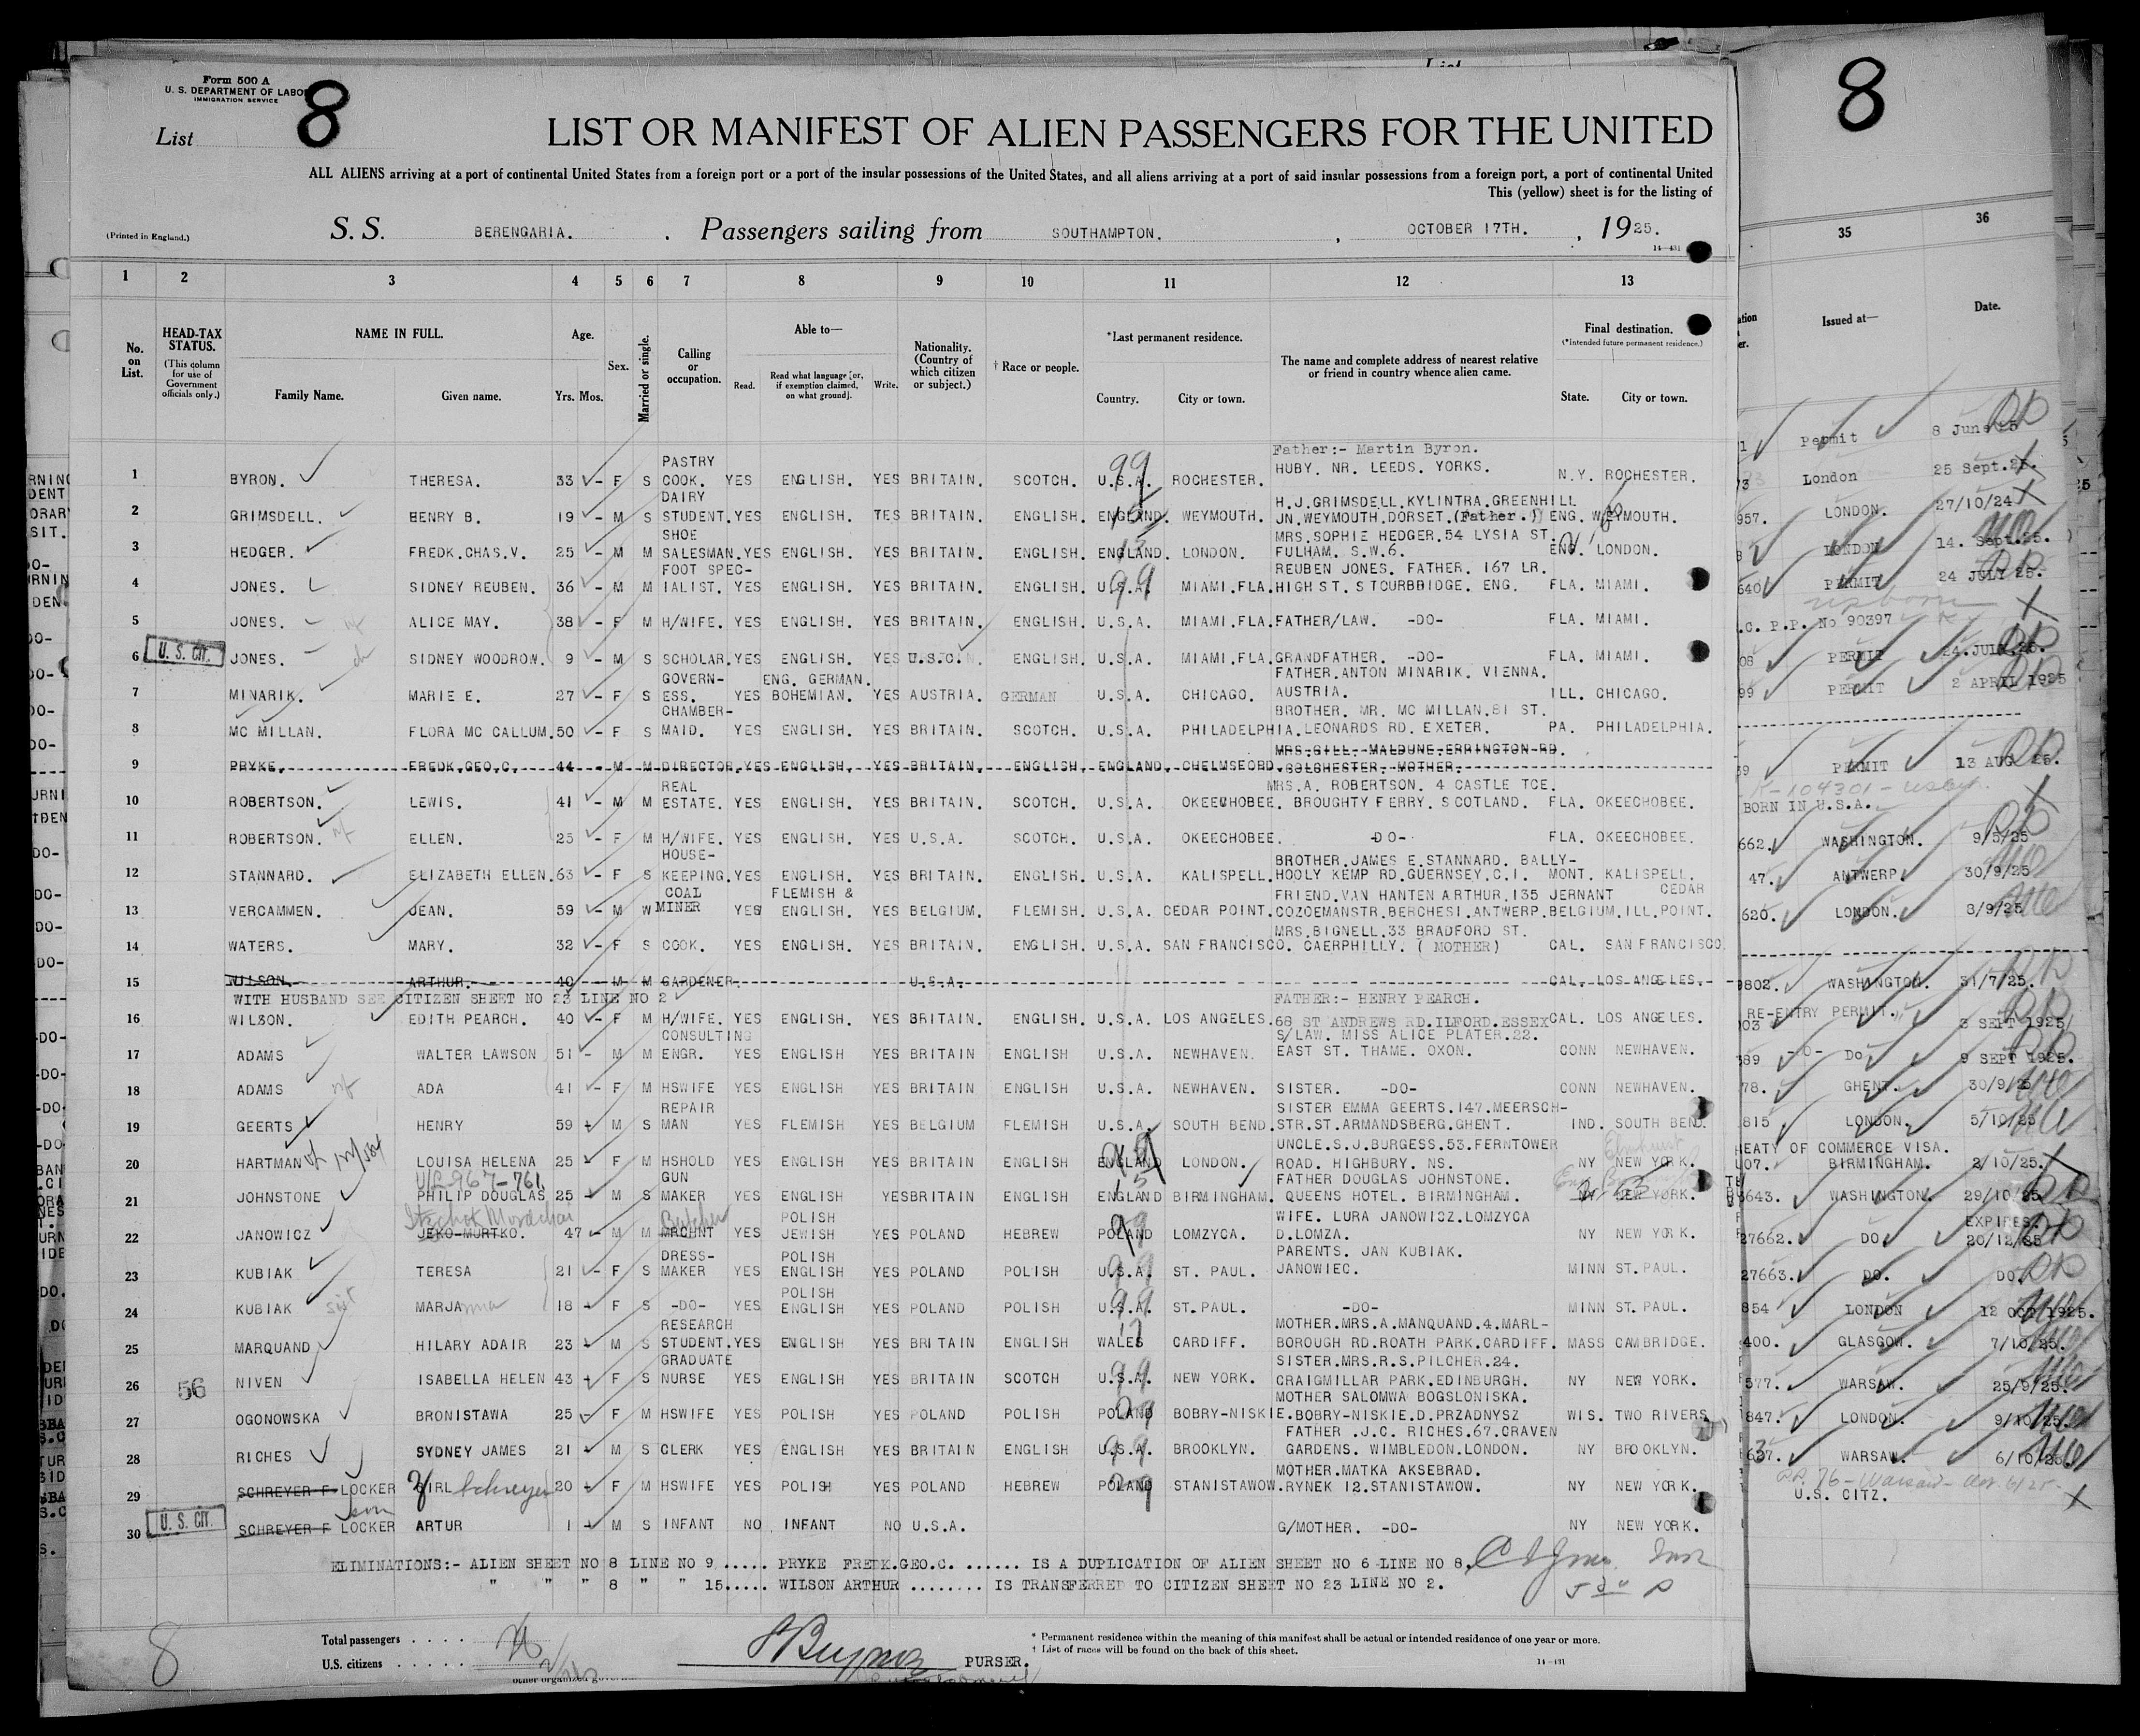 Form 500 A
U. S. DEPARTMENT OF LABOR
IMMIGRATION SERVICE
List 8
8
LIST OR MANIFEST OF ALIEN PASSENGERS FOR THE UNITED
ALL ALIENS arriving at a port of continental United States from a foreign port or a port of the insular possessions of the United States, and all aliens arriving at a port of said insular possessions from a foreign port, a port of continental United
This (yellow) sheet is for the listing of
(Printed in England.)
S. S. BERENGARIA. Passengers sailing from SOUTHAMPTON. , OCTOBER 17TH. , 1925.
1 2 3 4 5 6 7 8 9 10 11 12 13 35 36
No. on List.
HEAD-TAX STATUS.
(This column for use of Government officials only.)
NAME IN FULL.
Family Name. Given name.
Age.
Yrs. Mos.
Sex.
Married or single.
Calling or occupation.
Able to—
Read. Read what language [or, if exemption claimed, on what ground]. Write.
Nationality. (Country of which citizen or subject.)
† Race or people.
*Last permanent residence.
Country. City or town.
The name and complete address of nearest relative or friend in country whence alien came.
Final destination.
(*Intended future permanent residence.)
State. City or town.
Issued at— Date.
Father:- Martin Byron.
1 BYRON. THERESA. 33 - F S PASTRY COOK. YES ENGLISH. YES BRITAIN. SCOTCH. U.S.A. ROCHESTER. HUBY. NR. LEEDS. YORKS. N.Y. ROCHESTER.
2 GRIMSDELL. HENRY B. 19 - M S DAIRY STUDENT. YES ENGLISH. YES BRITAIN. ENGLISH. ENGLAND. WEYMOUTH. H.J.GRIMSDELL.KYLINTRA.GREENHILL JN.WEYMOUTH.DORSET.(Father.) ENG. WEYMOUTH.
3 HEDGER. FREDK.CHAS.V. 25 - M M SHOE SALESMAN. YES ENGLISH. YES BRITAIN. ENGLISH. ENGLAND. LONDON. MRS.SOPHIE HEDGER.54 LYSIA ST. FULHAM. S.W.6. ENG. LONDON.
4 JONES. SIDNEY REUBEN. 36 - M M FOOT SPECIALIST. YES ENGLISH. YES BRITAIN. ENGLISH. U.S.A. MIAMI.FLA. REUBEN JONES. FATHER. 167 LR. HIGH ST. STOURBRIDGE. ENG. FLA. MIAMI.
5 JONES. ALICE MAY. 38 - F M H/WIFE. YES ENGLISH. YES BRITAIN. ENGLISH. U.S.A. MIAMI.FLA. FATHER/LAW. -DO- FLA. MIAMI.
6 U. S. CIT. JONES. SIDNEY WOODROW. 9 - M S SCHOLAR. YES ENGLISH. YES U.S.C. ENGLISH. U.S.A. MIAMI.FLA. GRANDFATHER. -DO- FLA. MIAMI.
7 MINARIK. MARIE E. 27 - F S GOVERN-ESS. YES ENG. GERMAN. BOHEMIAN. YES AUSTRIA. GERMAN U.S.A. CHICAGO. FATHER.ANTON MINARIK. VIENNA. AUSTRIA. ILL. CHICAGO.
8 MC MILLAN. FLORA MC CALLUM. 50 - F S CHAMBER-MAID. YES ENGLISH. YES BRITAIN. SCOTCH. U.S.A. PHILADELPHIA. BROTHER. MR. MC MILLAN.81 ST. LEONARDS RD. EXETER. PA. PHILADELPHIA.
9 PRYKE. FREDK.GEO.C. 44 - M M DIRECTOR. YES ENGLISH. YES BRITAIN. ENGLISH. ENGLAND. CHELMSFORD. MRS.GILL. MALDUNE.ERRINGTON RD. COLCHESTER. MOTHER.
10 ROBERTSON. LEWIS. 41 - M M REAL ESTATE. YES ENGLISH. YES BRITAIN. SCOTCH. U.S.A. OKEECHOBEE. MRS.A. ROBERTSON. 4 CASTLE TCE. BROUGHTY FERRY. SCOTLAND. FLA. OKEECHOBEE.
11 ROBERTSON. ELLEN. 25 - F M H/WIFE. YES ENGLISH. YES U.S.A. SCOTCH. U.S.A. OKEECHOBEE. -DO- FLA. OKEECHOBEE.
12 STANNARD. ELIZABETH ELLEN. 63 - F S HOUSE-KEEPING. YES ENGLISH. YES BRITAIN. ENGLISH. U.S.A. KALISPELL. BROTHER.JAMES E.STANNARD. BALLY-HOOLY KEMP RD.GUERNSEY.C.I. MONT. KALISPELL.
13 VERCAMMEN. JEAN. 59 - M W COAL MINER YES FLEMISH & ENGLISH. YES BELGIUM. FLEMISH. U.S.A. CEDAR POINT. FRIEND.VAN HANTEN ARTHUR.135 JERNANT COZOEMANSTR.BERCHESI.ANTWERP.BELGIUM. ILL. CEDAR POINT.
14 WATERS. MARY. 32 - F S COOK. YES ENGLISH. YES BRITAIN. ENGLISH. U.S.A. SAN FRANCISCO. MRS.BIGNELL.33 BRADFORD ST. CAERPHILLY. ( MOTHER) CAL. SAN FRANCISCO
15 WILSON. ARTHUR. 40 M M GARDENER. U.S.A. CAL. LOS ANGELES.
WITH HUSBAND SEE CITIZEN SHEET NO 23 LINE NO 2
16 WILSON. EDITH PEARCH. 40 - F M H/WIFE. YES ENGLISH. YES BRITAIN. ENGLISH. U.S.A. LOS ANGELES. FATHER:- HENRY PEARCH. 68 ST ANDREWS RD.ILFORD.ESSEX CAL. LOS ANGELES.
17 ADAMS WALTER LAWSON 51 - M M CONSULTING ENGR. YES ENGLISH YES BRITAIN ENGLISH U.S.A. NEWHAVEN. S/LAW. MISS ALICE PLATER.22. EAST ST. THAME. OXON. CONN NEWHAVEN.
18 ADAMS ADA 41 - F M HSWIFE YES ENGLISH YES BRITAIN ENGLISH U.S.A. NEWHAVEN. SISTER. -DO- CONN NEWHAVEN.
19 GEERTS HENRY 59 - M S REPAIR MAN YES FLEMISH YES BELGIUM FLEMISH U.S.A. SOUTH BEND. SISTER EMMA GEERTS.147.MEERSCH-STR.ST.ARMANDSBERG.GHENT. IND. SOUTH BEND.
20 HARTMAN LOUISA HELENA 25 - F M HSHOLD YES ENGLISH YES BRITAIN ENGLISH ENGLAND LONDON. UNCLE.S.J.BURGESS.53.FERNTOWER ROAD. HIGHBURY. NS. NY NEW YORK.
21 JOHNSTONE PHILIP DOUGLAS 25 - M S GUN MAKER YES ENGLISH YES BRITAIN ENGLISH ENGLAND BIRMINGHAM. FATHER DOUGLAS JOHNSTONE. QUEENS HOTEL. BIRMINGHAM. NEW YORK.
22 JANOWICZ JEKO-MURTKO. Itzchok Mordchai 47 - M M MRCHNT Butcher YES POLISH JEWISH YES POLAND HEBREW POLAND LOMZYCA. WIFE. LURA JANOWICZ.LOMZYCA D.LOMZA. NY NEW YORK.
23 KUBIAK TERESA 21 - F S DRESS-MAKER YES POLISH ENGLISH YES POLAND POLISH U.S.A. ST. PAUL. PARENTS. JAN KUBIAK. JANOWIEC. MINN ST. PAUL.
24 KUBIAK MARJA 18 - F S -DO- YES POLISH ENGLISH YES POLAND POLISH U.S.A. ST.PAUL. -DO- MINN ST. PAUL.
25 MARQUAND HILARY ADAIR 23 - M S RESEARCH STUDENT. YES ENGLISH YES BRITAIN ENGLISH WALES CARDIFF. MOTHER.MRS.A.MANQUAND.4.MARL-BOROUGH RD.ROATH PARK.CARDIFF. MASS CAMBRIDGE.
26 56 NIVEN ISABELLA HELEN 43 - F S GRADUATE NURSE YES ENGLISH YES BRITAIN SCOTCH U.S.A. NEW YORK. SISTER.MRS.R.S.PILCHER.24. CRAIGMILLAR PARK.EDINBURGH. NY NEW YORK.
27 OGONOWSKA BRONISTAWA 25 - F M HSWIFE YES POLISH YES POLAND POLISH POLAND BOBRY-NISKIE. MOTHER SALOMWA BOGSLONISKA. BOBRY-NISKIE.D.PRZADNYSZ WIS. TWO RIVERS
28 RICHES SYDNEY JAMES 21 - M S CLERK YES ENGLISH YES BRITAIN ENGLISH U.S.A. BROOKLYN. FATHER .J.C. RICHES.67.CRAVEN GARDENS. WIMBLEDON.LONDON. NY BROOKLYN.
29 SCHREYER F LOCKER GIRL Schreyer 20 - F M HSWIFE YES POLISH YES POLAND HEBREW POLAND STANISTAWOW. MOTHER.MATKA AKSEBRAD. RYNEK 12.STANISTAWOW. NY NEW YORK.
30 U. S. CIT. SCHREYER F LOCKER son ARTUR 1 - M S INFANT NO INFANT NO U.S.A. G/MOTHER. -DO- NY NEW YORK.
ELIMINATIONS:- ALIEN SHEET NO 8 LINE NO 9..... PRYKE FREDK.GEO.C. ...... IS A DUPLICATION OF ALIEN SHEET NO 6 LINE NO 8.
" " " 8 " " 15..... WILSON ARTHUR ........ IS TRANSFERRED TO CITIZEN SHEET NO 23 LINE NO 2.
8
Total passengers . . . .
U.S. citizens . . . . .
PURSER.
* Permanent residence within the meaning of this manifest shall be actual or intended residence of one year or more.
† List of races will be found on the back of this sheet.
14—431
Permit 8 June 25
London 25 Sept.25.
957. LONDON. 27/10/24
LONDON 14. Sept.25.
640 PERMIT 24 JULY 25.
.C. P.P. No 90397
08 PERMIT 24.JULY.25.
99 PERMIT 2 APRIL 1925
39 PERMIT 13 AUG 25.
BORN IN U.S.A.
662. WASHINGTON. 9/5/25
47. ANTWERP. 30/9/25
620. LONDON. 8/9/25
9802. WASHINGTON. 31/7/25.
RE-ENTRY PERMIT. 3 SEPT 1925
389 -O- DO 9 SEPT 1925.
78. GHENT. 30/9/25
815 LONDON. 5/10/25
REATY OF COMMERCE VISA.
607. BIRMINGHAM. 2/10/25.
3643. WASHINGTON. 29/10/25
EXPIRES.
27662. DO 20/12/25
27663. DO. DO.
854 LONDON 12 OCT 1925.
400. GLASGOW. 7/10/25.
577. WARSAW. 25/9/25.
847. LONDON. 9/10/25.
637. WARSAW. 6/10/25
U.S. CITZ.